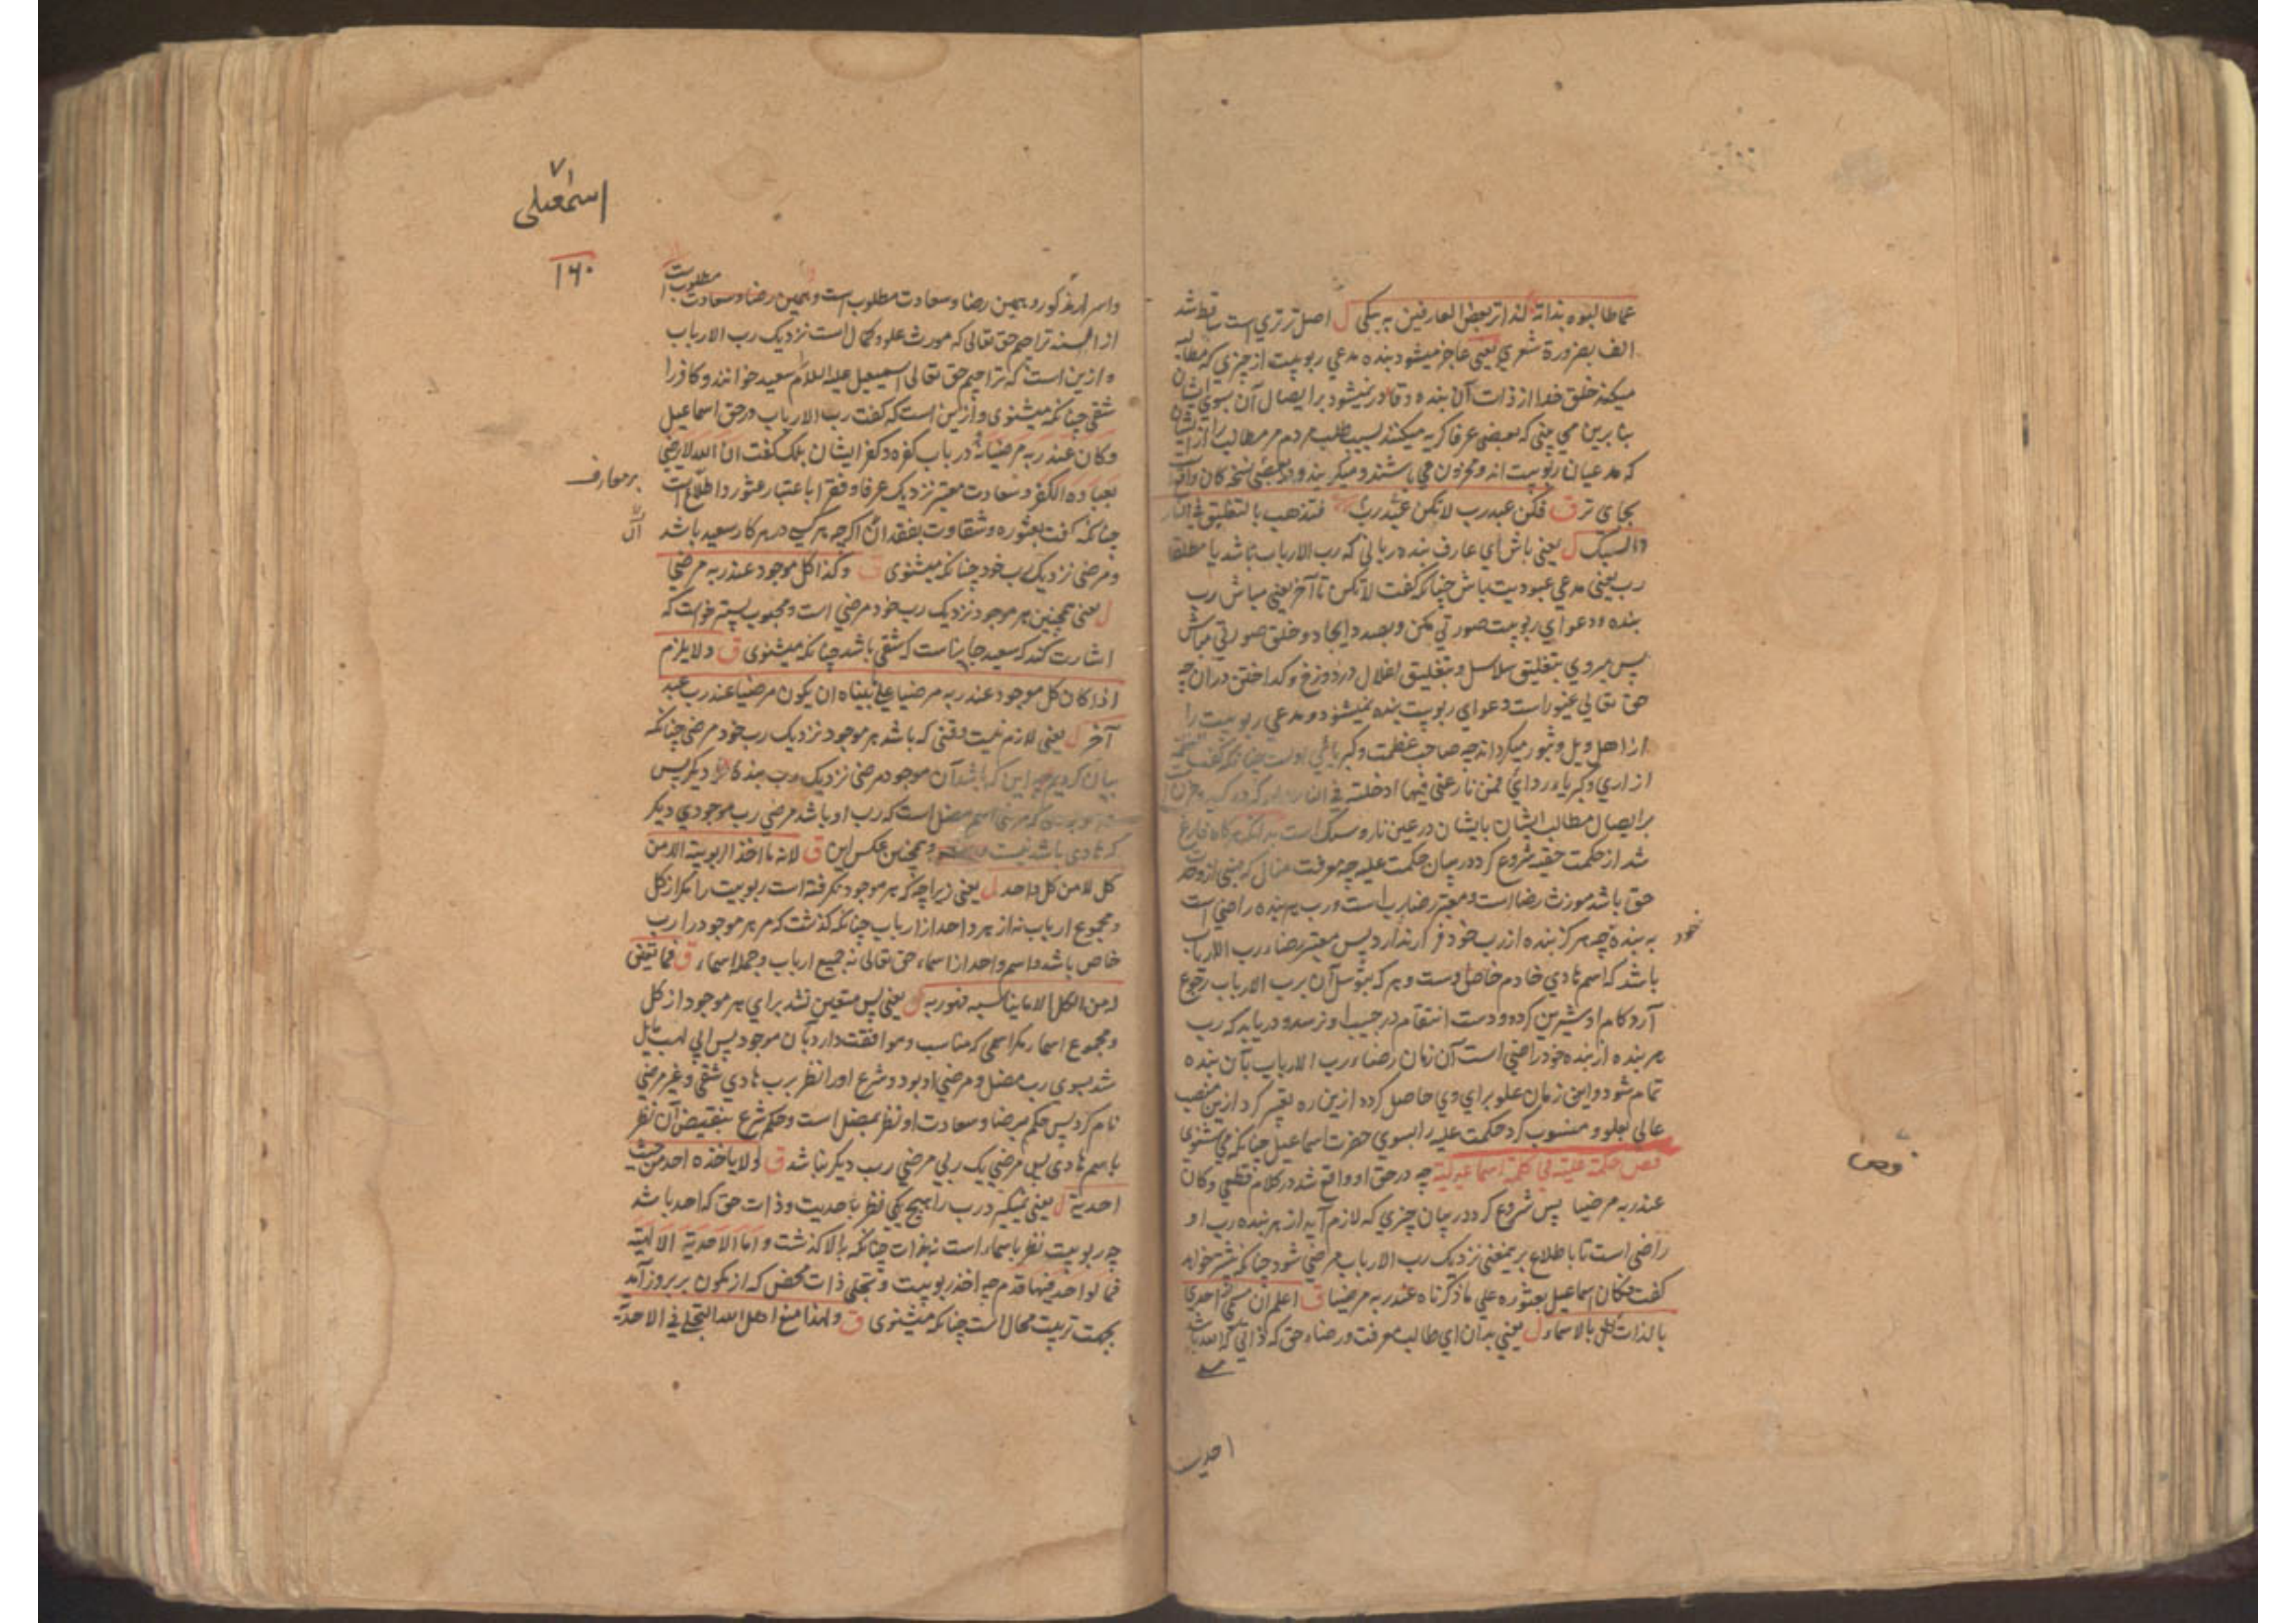 عما طالبوه بذاته لذا تر بعض العارفین به یبکی ل اصل تر تری است ساقط شد
الف بضرورة شعری یعنی عاجز میشود بنده مدعی ربوبیت از چیزی که مطالبه
میکند خلق خدا از ذات آن بنده و قادر نمیشود بر ایصال آن بسوی ایشان
بنا برین می بینی که بعضی عرفا گریه میکنند بسبب طلب مردم مر مطالب را از ایشان
که مدعیان ربوبیت اند و محزون می باشند و میگریند و در بعضی نسخ کان واقع است
بجای تر ق فکن عبد رب لا تکن عبده رب فتذهب بالتعلیق فی النار
والسبک ل یعنی باش ای عارف بنده ربانی که رب الارباب باشد یا مطلقا
رب یعنی مدعی عبودیت باش چنانکه گفت لا تکن تا آخر یعنی مباش رب
بنده و دعوای ربوبیت صورتی مکن و بصدد ایجاد و خلق صورتی مباش
پس میروی بتعلیق سلاسل و بتغلیق اغلال در دوزخ و گداختن در آن چه
حق تعالی غیور است دعوای ربوبیت بنده نمیشنود و مدعی ربوبیت را
از اهل ویل و ثبور میگرداند چه صاحب عظمت و کبریائی اوست چنانکه گفت العظمة
ازاری و کبریاء ردائی فمن نازعنی فیها ادخلته فی النار
بر ایصال مطالب ایشان بایشان در عین نار و سبک است بدانکه هرگاه فارغ
شد از حکمت حقیه شروع کرد در بیان حکمت علیه چه معرفت مثالی که مبنی از وحدت
حق باشد مورث رضا است و معتبر رضا رب است و رب هر بنده راضی است
به بنده چه هرگز بنده از رب خود فرار ندارد پس معتبر رضاء رب الارباب
باشد که اسم هادی خادم خاص اوست و هر که بتوسل آن برب الارباب رجوع
آرد کام او شیرین کرده و دست انتقام در جیب او نرسد و دریابد که رب
هر بنده از بنده خود راضی است آن زمان رضاء رب الارباب بآن بنده
تمام شود و این زمان علو برای وی حاصل گردد ازین ره تعبیر کرد ازین منصب
عالی بعلو و منسوب کرد حکمت علیه را بسوی حضرت اسماعیل چنانکه می شنوی
فص حکمة علیة فی کلمة اسماعیلیة چه در حق او واقع شد در کلام قطعی وکان
عند ربه مرضیا پس شروع کرد در بیان چیزی که لازم آید از هر بنده رب او
راضی است تا باطلاع برین معنی نزدیک رب الارباب مرضی شود چنانکه پیشتر خواهد
گفت فکان اسماعیل بعثوره علی ما ذکرناه عند ربه مرضیا ق اعلم ان مسمی الله احدی
بالذات کل بالاسماء ل یعنی بدان ای طالب معرفت و رضاء حق که ذاتی که الله باشد
خود
فص
احدیت
۷
اسمعیلی
۱۶۰
واسرار مذکوره و همین رضا و سعادت مطلوب است و همین رضا و سعادت مطلوب است
از السنه تراجم حق تعالی که مورث علو و کمال است نزدیک رب الارباب
و ازین است که تراجم حق تعالی اسمعیل علیه السلام سعید خوانند و کافر را
شقی چنانکه میشنوی و ازین است که گفت رب الارباب در حق اسماعیل
وکان عند ربه مرضیا نه در باب کفره و کفر ایشان بلکه گفت ان الله لا یرضی
بعباده الکفر و سعادت معتبر نزدیک عرفا و فقرا باعتبار عثور و اطلاع است
بر معارف
چنانکه گفت بعثوره و شقاوت بفقدان آن اگرچه هر کسی در هر کار سعید باشد
و مرضی نزدیک رب خود چنانکه میشنوی ق وکذا کل موجود عند ربه مرضی
ل یعنی همچنین هر موجود نزدیک رب خود مرضی است و محبوب پستر خواست که
اشارت کند که سعید جا بناست که شقی باشد چنانکه میشنوی ق ولا یلزم
اذا کان کل موجود عند ربه مرضیا علی ما بیناه ان یکون مرضیا عند رب عبد
آخر ل یعنی لازم نیست وقتی که باشد هر موجود نزدیک رب خود مرضی چنانکه
بیان کردیم چه این که باشد آن موجود مرضی نزدیک رب بنده دیگر پس
اسم مضل است که رب او باشد مرضی رب موجودی دیگر
که هادی باشد نیست و همچنین عکس این ق لانه ما اخذ الربوبیة الا من
کل لا من کل واحد ل یعنی زیرا چه که هر موجود نگرفته است ربوبیت را مگر از کل
و مجموع ارباب نه از هر واحد از ارباب چنانکه گذشت که مر هر موجود را رب
خاص باشد و اسم واحد از اسماء حق تعالی نه جمیع ارباب و جمله اسماء ق فما تعین
له من الکل الا ما یناسبه فهو ربه ل یعنی پس متعین نشد برای هر موجود از کل
و مجموع اسما مگر اسمی که مناسب و موافقت دارد بآن موجود پس ابی لهب مایل
شد بسوی رب مضل و مرضی او بود و شرع او را نظر برب هادی شقی و غیر مرضی
نام کرد پس حکم برضا و سعادت او نظر بمضل است و حکم شرع بنقیض آن نظر
باسم هادی پس مرضی یک ربی مرضی رب دیگر نباشد ق ولا یاخذه احد من حیث
احدیته ل یعنی نمیگیرد رب را هیچ یکی نظر باحدیت و ذات حق که احد باشد
چه ربوبیت نظر باسماء است نه بذات چنانکه بالا گذشت و اما الاحدیة الالهیة
فما لواحد فیها قدم چه اخذ ربوبیت و تجلی ذات محض که از مکون بر بروز آمد
بجهت تربیت محال است چنانکه میشنوی ق ولهذا منع اهل الله التجلی فی الاحدیة